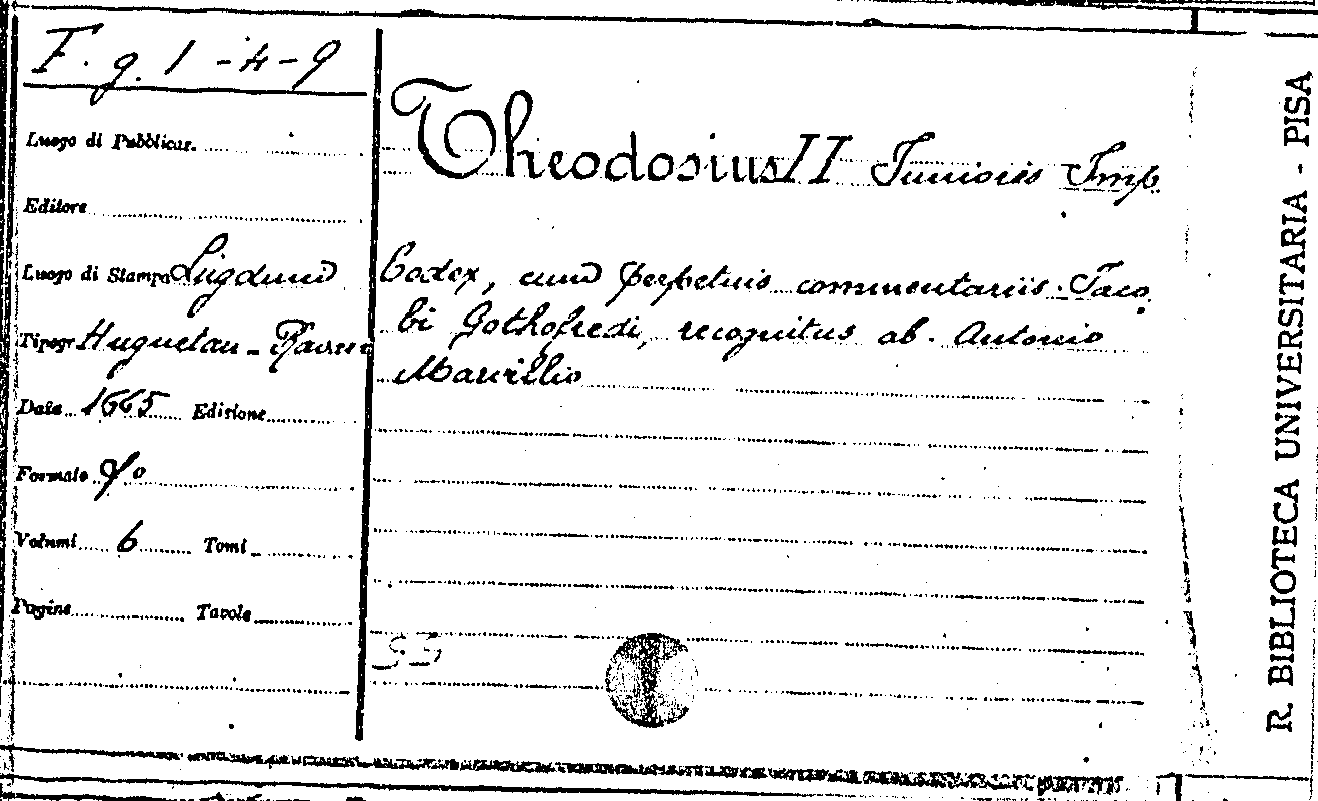 F. g. 1 - 4 - 9
Luogo di Pubblicaz.
Editore
Luogo di Stampa Lugduni
Tipogr. Huguetan - Ravaud
Data 1665 Edizione
Formato fo
Volumi 6 Tomi
Pagine Tavole
Theodosius II Junioris Imp
Codex, cum perpetuis commentariis Jaco
bi Gothofredi, recognitus ab. Antonio
Marvillio
R. BIBLIOTECA UNIVERSITARIA - PISA